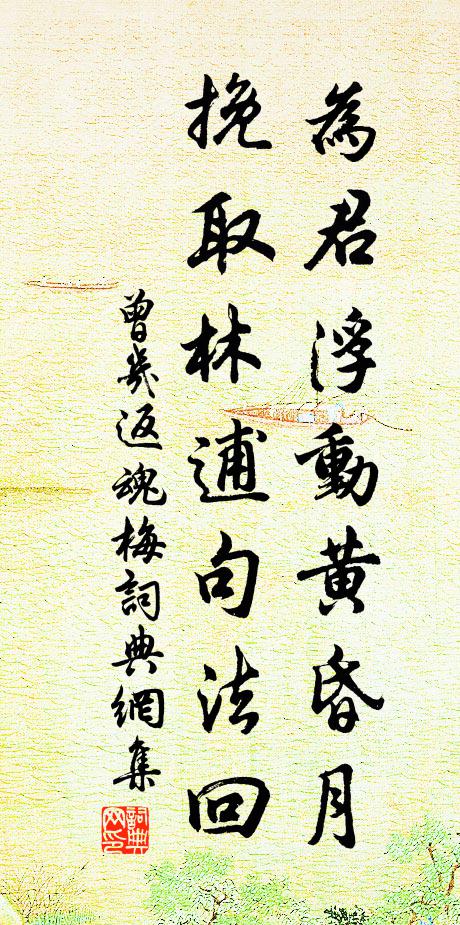 為君浮動黄昏月
挽取林逋句法回
曾幾返魂梅詞典網集
詞典网印